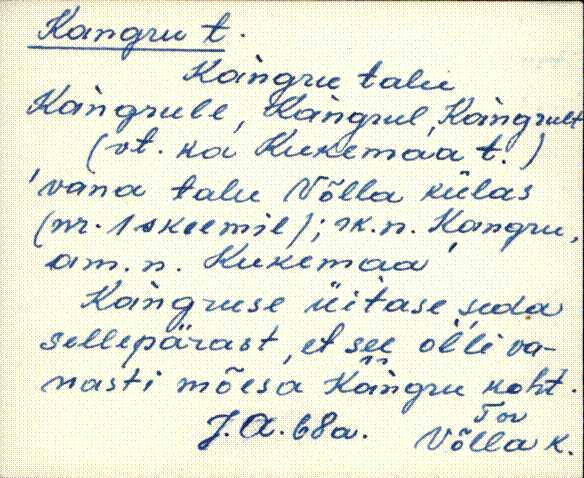 Kangru t.
Kàngru talu
Kàngrule, Kàngrul, Kàngrult
(vt. ka Kukemaa t.)
'vana talu Võlla külas
(nr. 1 skeemil); rk.n. Kangru,
am. n. Kukemaa'
Kàngruse üitase seda
sellepärast, et see òlli va-
nasti mõesa Kàngru koht.
J.A. 68a. Tor
Võlla k.